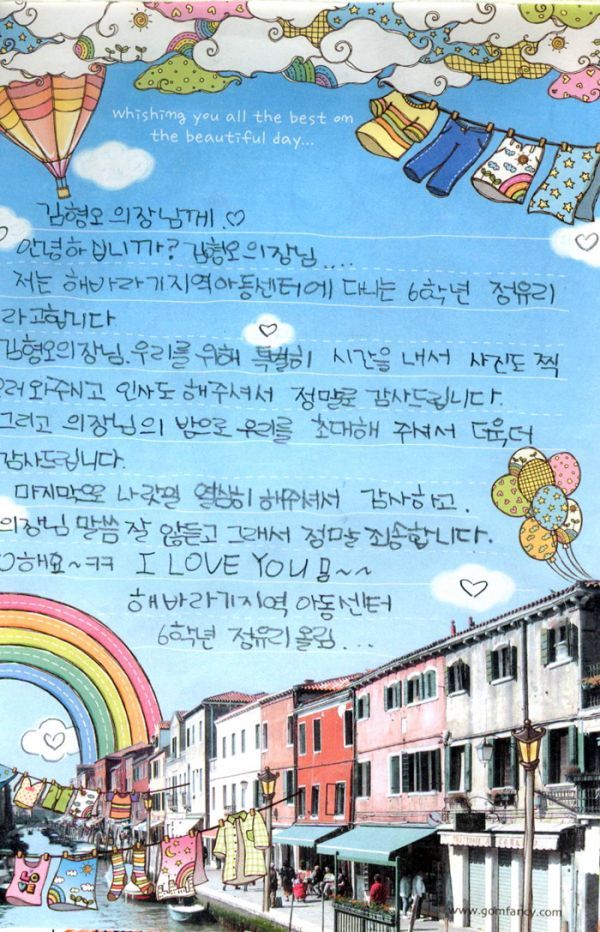 Whishing you all the best on
the beautiful day...
김형오 의장님께 ♡
안녕하십니까? 김형오의장님....
저는 해바라기지역아동센터에 다니는 6학년 정유리
라고합니다
김형오의장님. 우리를 위해 특별히 시간을 내서 사진도 찍
으러와주시고 인사도 해주셔서 정말로 감사드립니다.
그리고 의장님의 방으로 우리를 초대해 주셔서 더욱,더
감사드립니다.
마지막으로 나랏일 열심히 해주셔서 감사하고.
의장님 말씀 잘 않듣고 그래서 정말 죄송합니다.
해요~ㅋㅋ I LOVE YOU ~~
해바라기지역 아동센터
6학년 정유리올림...
LOVE
www.gomfancy.com